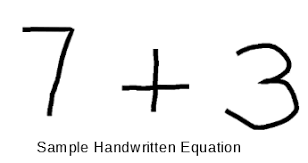 7 + 3
Sample Handwritten Equation